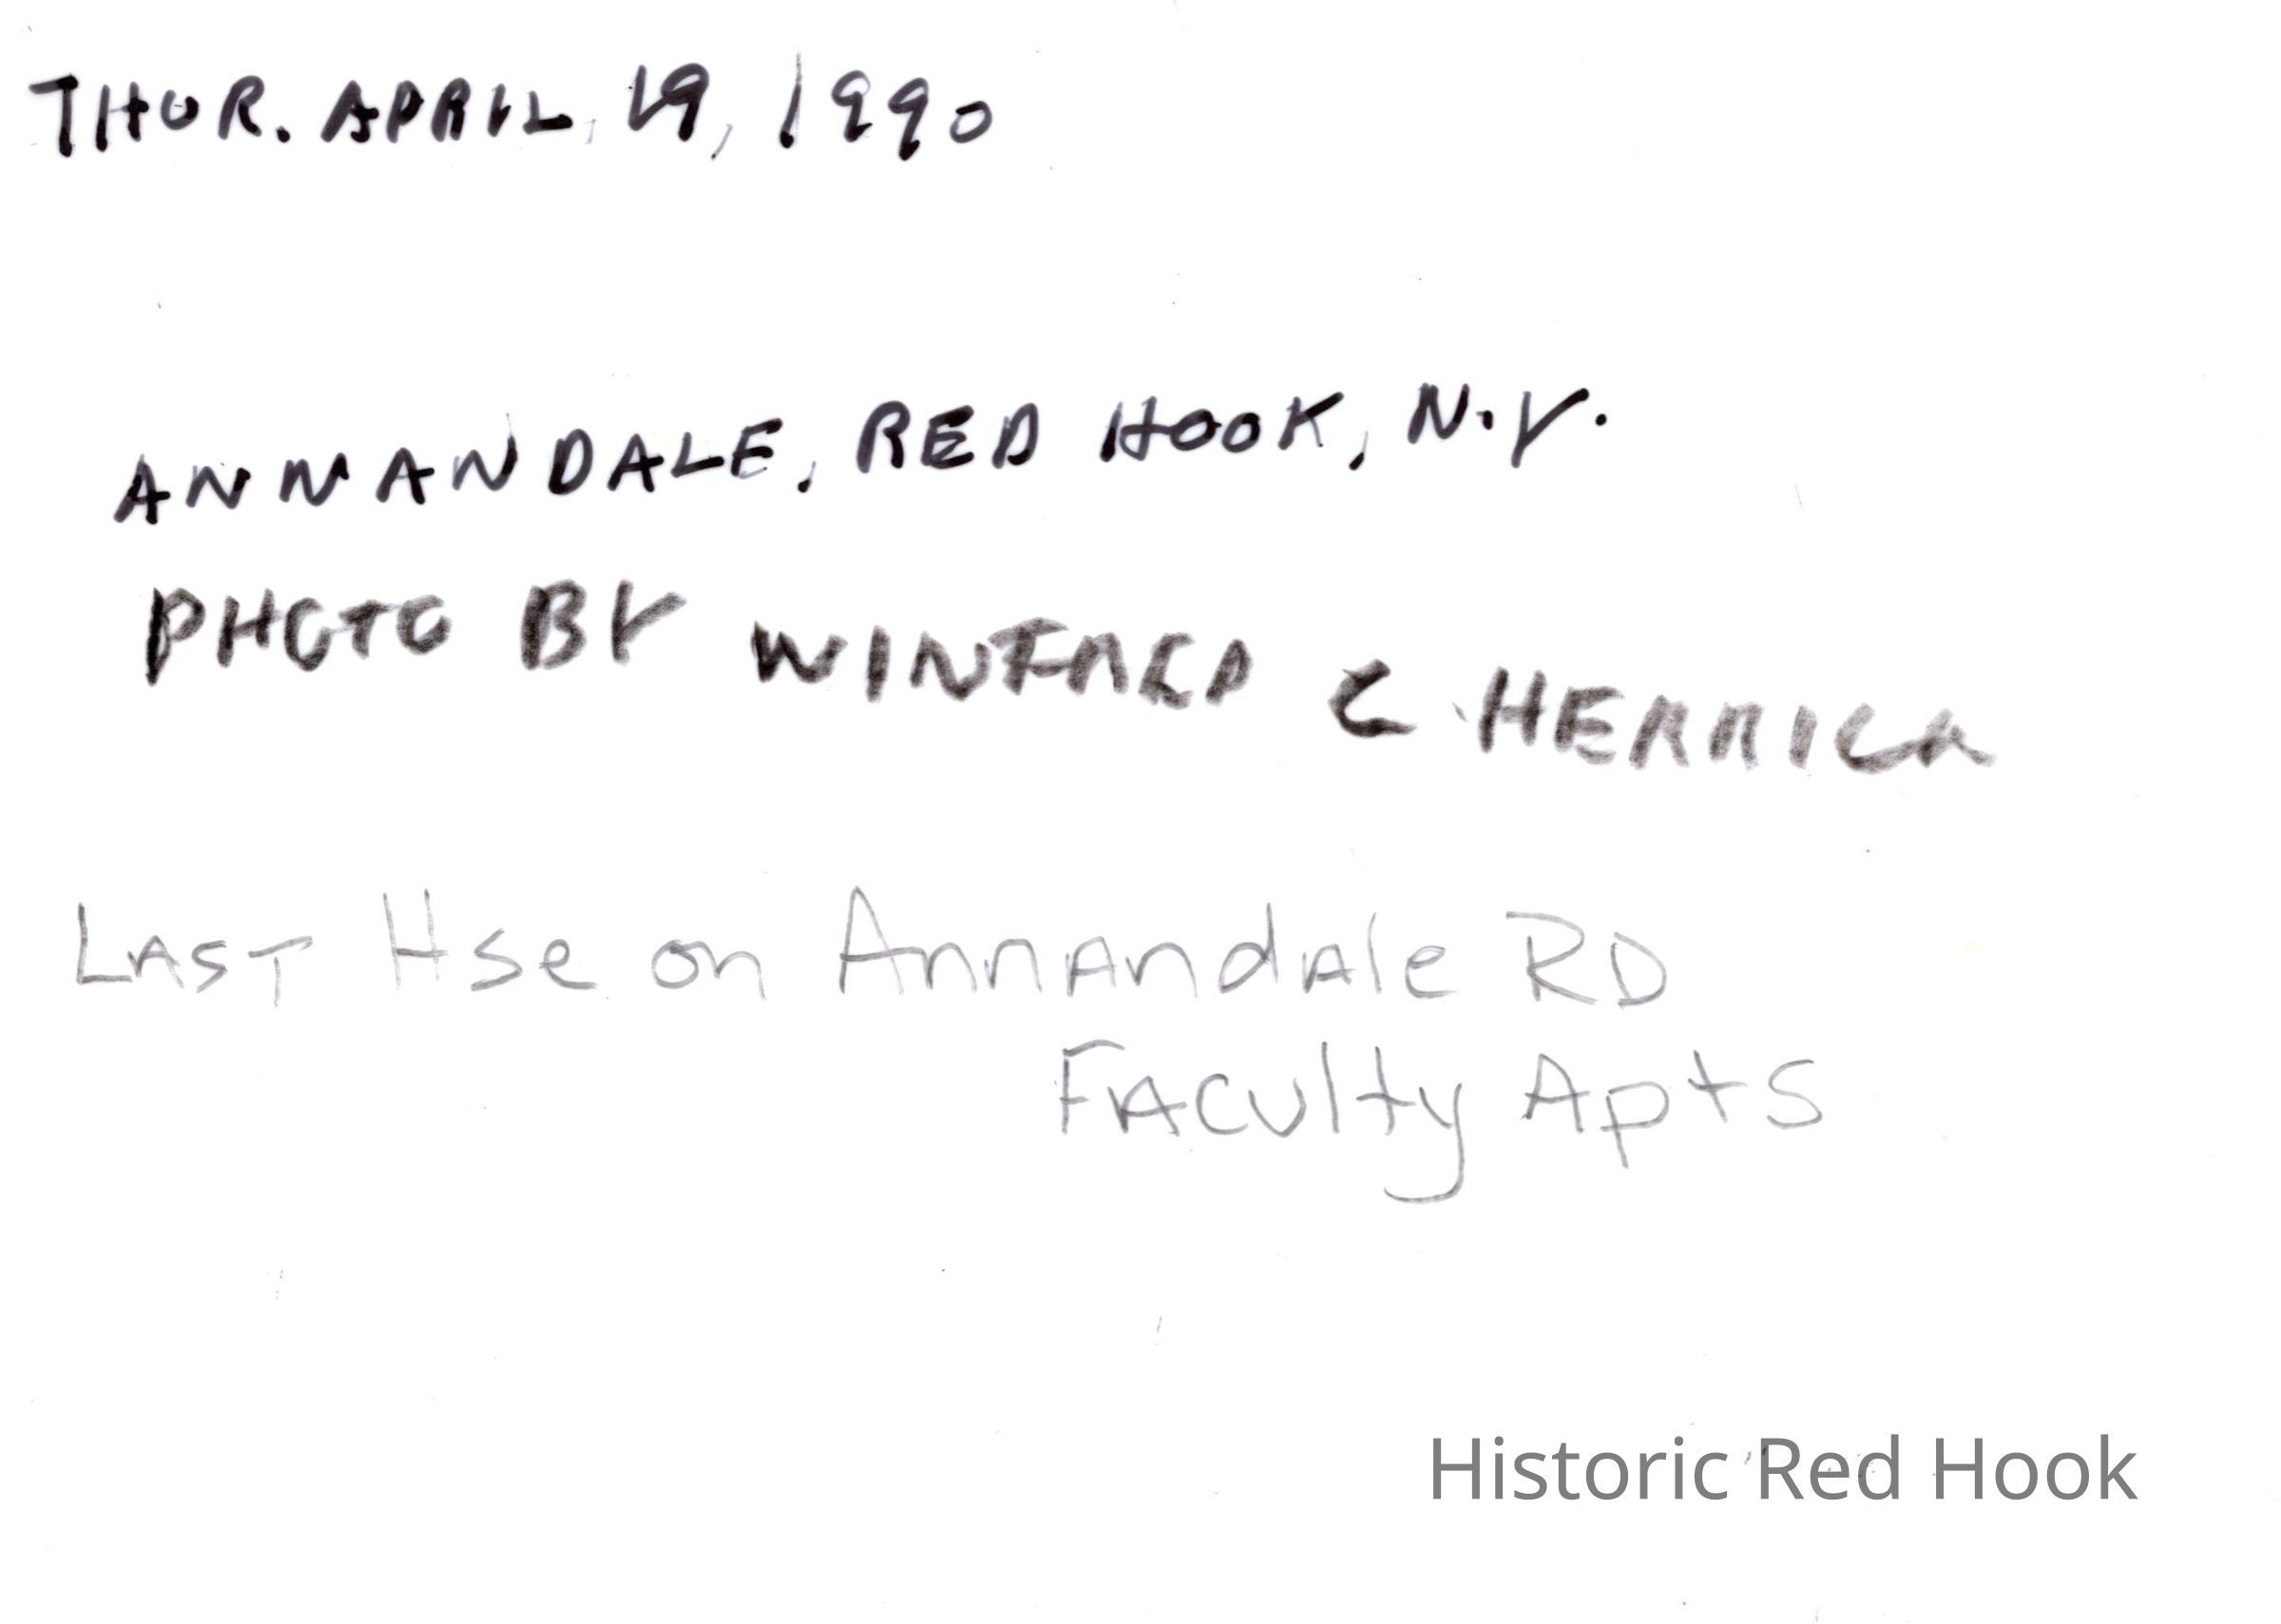 THUR. APRIL, 19, 1990
ANNANDALE, RED HOOK, N.Y.
PHOTO BY WINFRED C. HERRICK
Last Hse on Annandale RD
Faculty Apts
Historic Red Hook